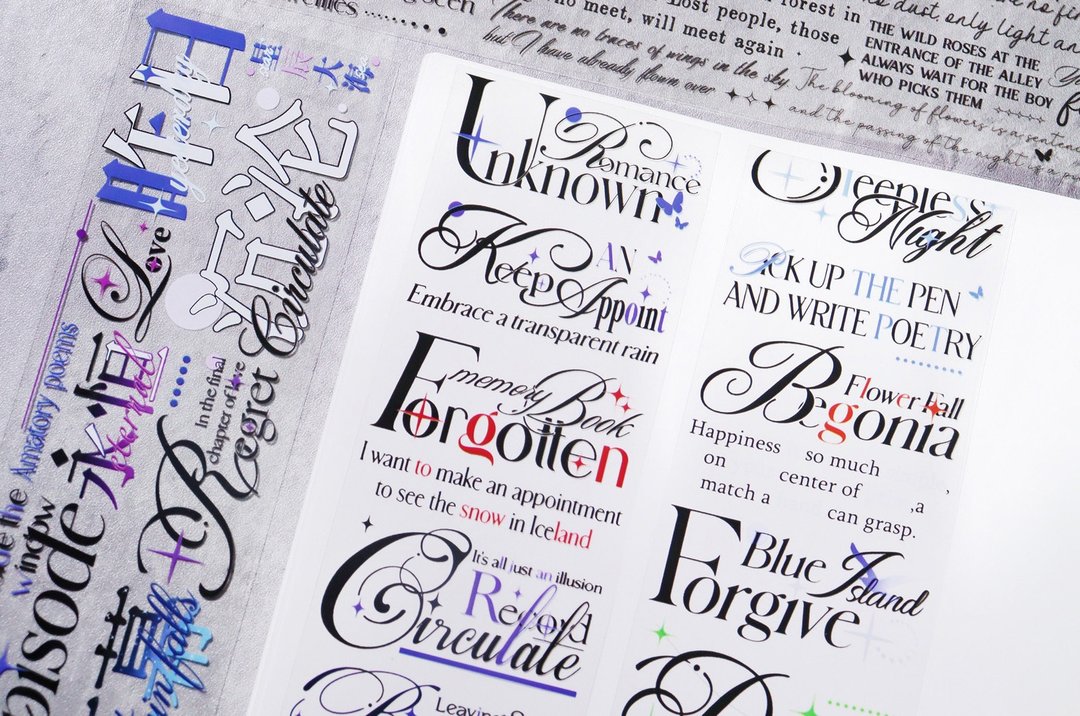 Lost people, those
who meet, will meet again
forest in
dust only light
There are no traces of wings in the sky
but I have already flown over
THE WILD ROSES AT THE
ENTRANCE OF THE ALLEY
ALWAYS WAIT FOR THE BOY
WHO PICKS THEM
The blooming of flowers is a
and the passing of the night is
星辰大海
Love
Circulate
永恒
Eternal
Amnatory poems
In the final
chapter of love
Regret
the
window
Disode
falls
Romance
Unknown
AN
Keep Appoint
Embrace a transparent rain
memory Book
Forgotten
I want to make an appointment
to see the snow in Iceland
It's all just an illusion
Record
Circulate
Leaving
Sleepless
Night
PICK UP THE PEN
AND WRITE POETRY
Flower Fall
Begonia
Happiness so much
on center of ,a ,
match a can grasp.
Blue Island
Forgive